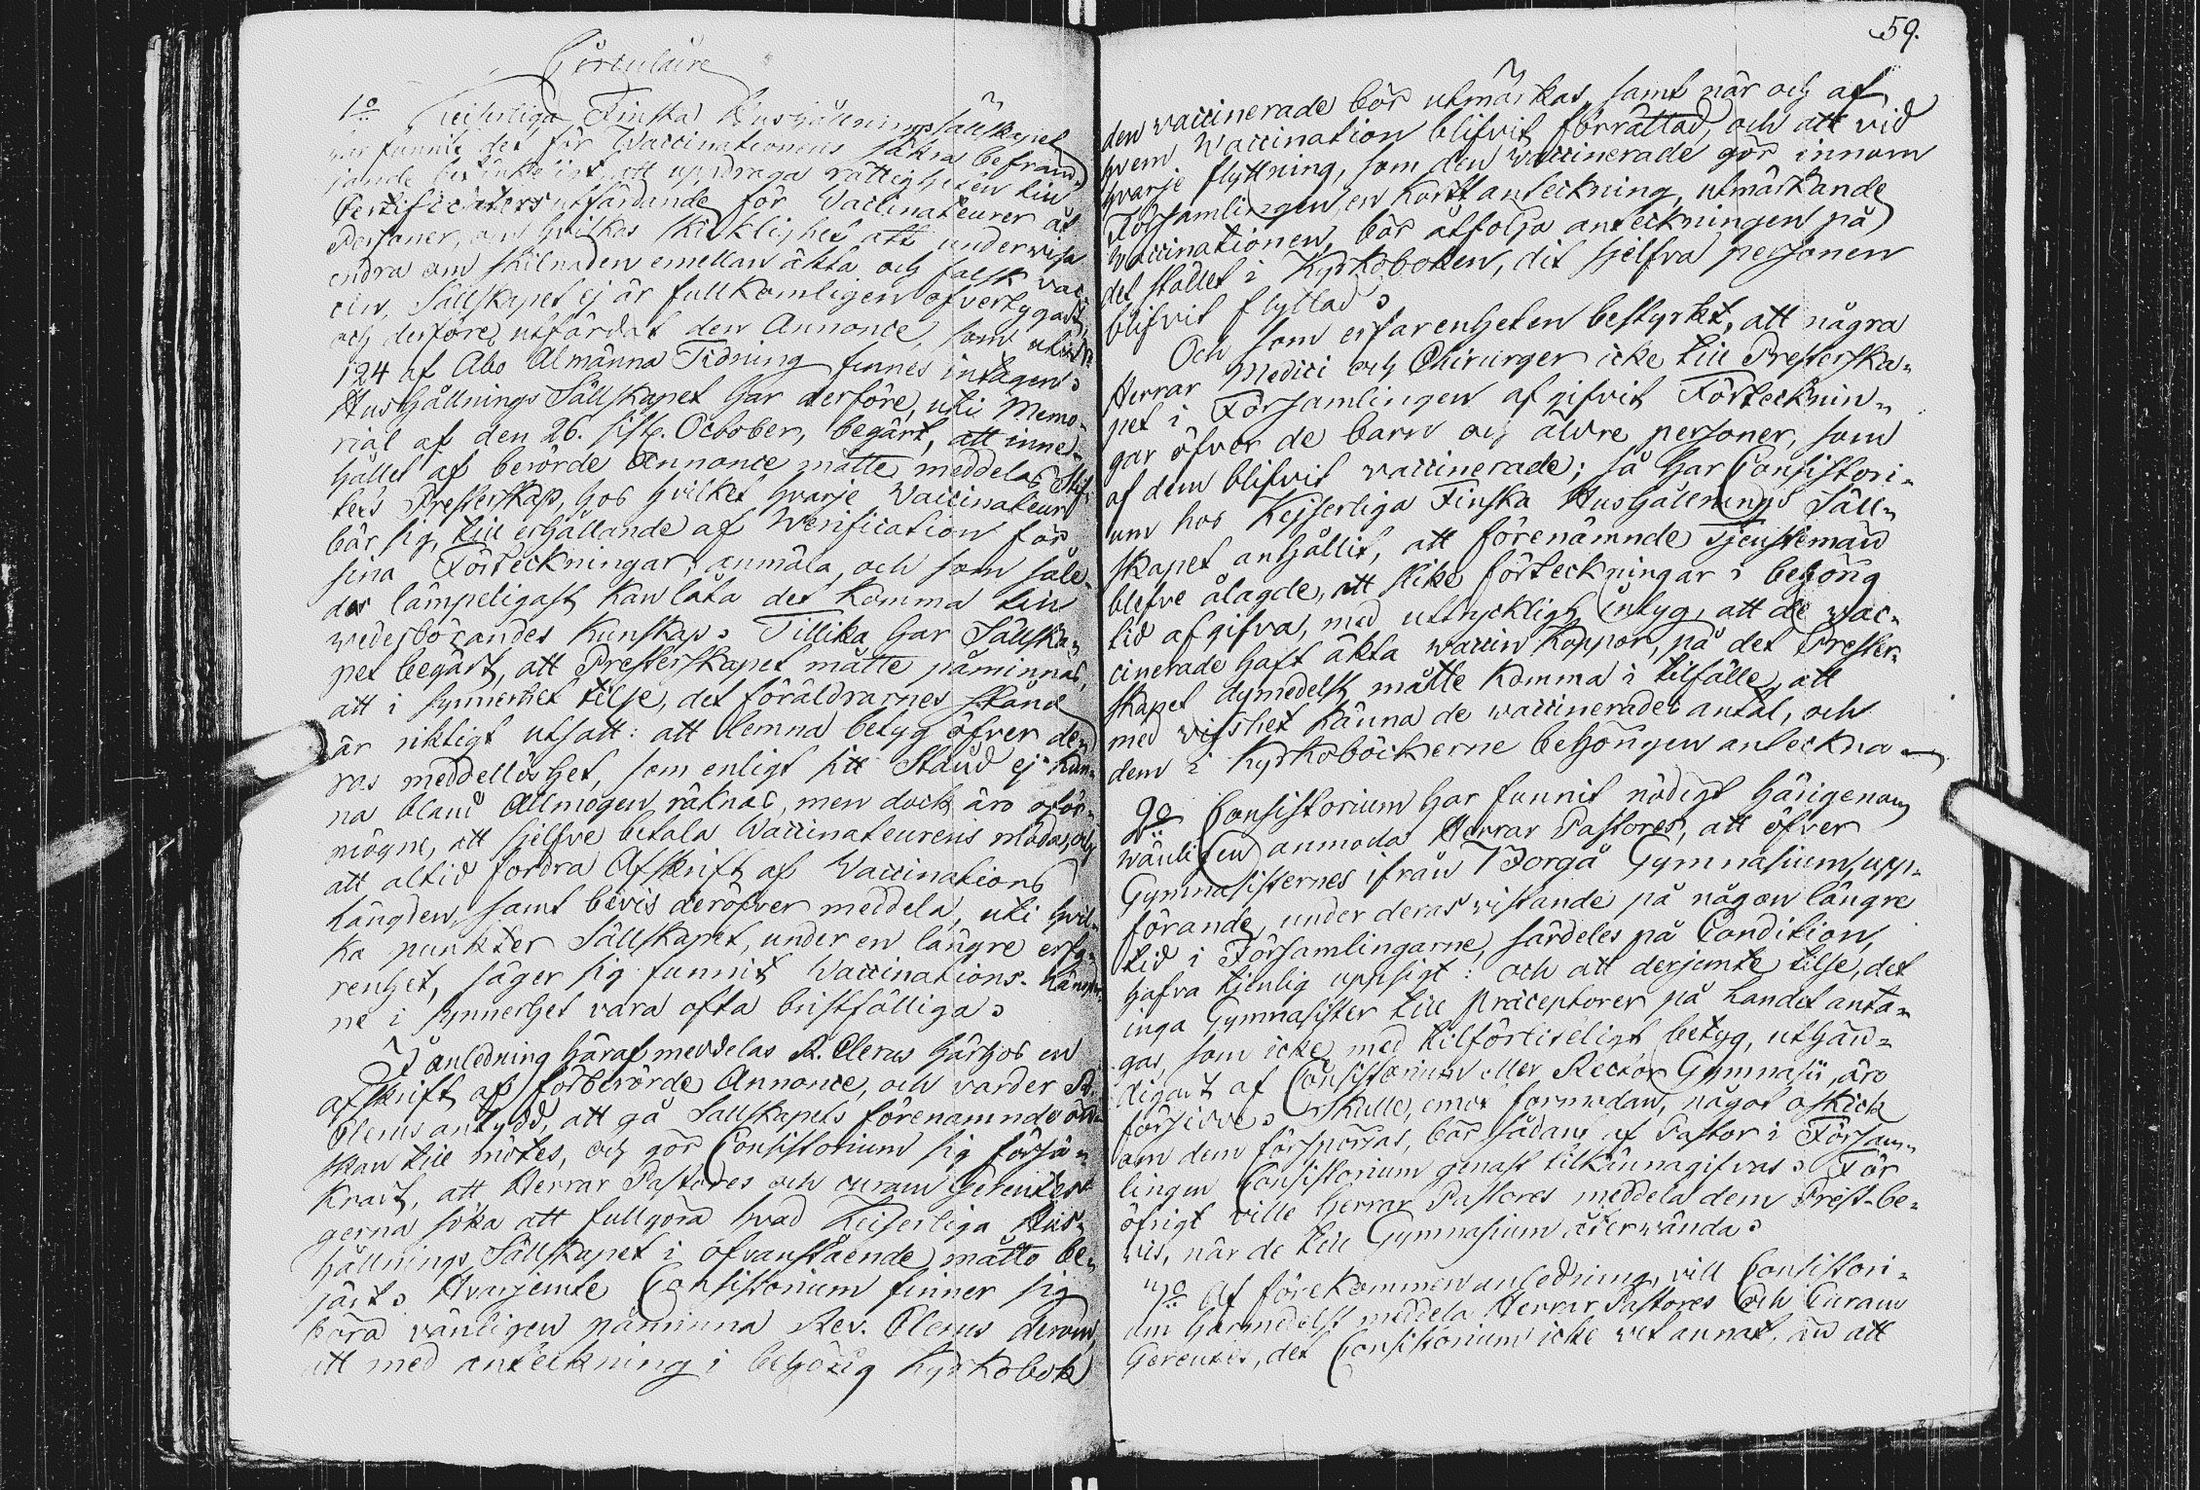 Circulaire
1o Keiserliga Finska Hushållningssällskapet
har funnit det för Vaccinationens säkra befräm-
jande betänkligt, att updraga rättigheten till
Certificaters utfärdande för Vaccinateurer åt
Personer, om hvilkas skicklighet att underwisa
andra om skilnaden emellan äkta och falsk vac-
cin, Sällskapet ej är fullkomligen öfvertygadt,
och derföre utfärdat den Annonce, som uti No
124 af Åbo Almänna Tidning finnes intagen.
Hushållnings Sällskapet har derföre, uti Memo-
rial af den 26. sistl. October, begärt, att inne-
hållet af berörde Annonce måtte meddelas Stif-
tets Presterskap, hos hvilket hvarje Vaccinateur
bör sig, till erhållande af Verification för
sina Förteckningar, anmäla, och som såle-
des lämpeligast kan låta det komma till
wederbörandes kunskap. Tillika har Sällska-
pet begärt, att Presterskapet måtte påminnas,
att i synnerhet tilse, det föräldrarnes stånd
är riktigt utsatt: att lemna betyg öfver de-
ras medellöshet, som enligt sitt Stånd ej kun-
na bland Allmogen räknas, men dock äro oför-
mögne, att sjelfve betala Vaccinateurens möda, och
att altid fordra Afskrift af Vaccinations
längden, samt bevis deröfver meddela, uti hvil-
ka punkter Sällskapet, under en längre erfa-
renhet, säger sig funnit Vaccinations-längder-
ne i synnerhet vara ofta bristfälliga.
I anledning häraf meddelas R. Clerus härhos en
afskrift af förberörde Annonce, och varder R.
Clerus antydd, att gå Sällskapets förenämnde ön-
skan till mötes, och gör Consistorium sig försä-
kradt, att Herrar Pastores och curam Gerentes
gerna söka att fullgöra hvad Keiserliga Hus-
hållnings Sällskapet i ofvanstående måtto be-
gärt. Hvarjemte Consistorium finner sig
böra vänligen påminna Rev. Clerus derom,
att med anteckning i behörig Kyrkobok
59.
den vaccinerade bör utmärkas, samt när och af
hvem Vaccination blifvit förrättad, och att vid
hvarje flyttning, som den vaccinerade gör innom
Församlingen, en kort anteckning, utmärkande
Vaccinationen, bör åtfölja anteckningen på
det stället i Kyrkoboken, dit sjelfva personen
blifvit flyttad.
Och som erfarenheten bestyrkt, att några
Herrar Medici och Chirurger icke till Presterska-
pet i Församlingen afgifvit Förtecknin-
gar öfver de barn och äldre personer, som
af dem blifvit vaccinerade; så har Consistori-
um hos Kejserliga Finska Hushållnings Säll-
skapet anhållit, att förenämnde Tjenstemän
blefve ålagde, att slike förteckningar i behörig
tid afgifva, med uttryckligt intyg, att de vac-
cinerade haft äkta vaccin koppor, på det Prester-
skapet dymedelst måtte komma i tilfälle, att
med visshet känna de vaccinerades antal, och
dem i Kyrkoböckerne behörigen anteckna.
2o Consistorium har funnit nödigt härigenom
wänligen anmoda Herrar Pastores, att öfver
Gymnasisternes ifrån Borgå Gymnasium, upp-
förande, under deras vistande på någon längre
tid i Församlingarne, särdeles på Condition,
hafva tjenlig uppsigt: och att derjemte tilse, det
inga Gymnasister till Præceptorer på Landet anta-
gas, som icke med tilförliteligt betyg, uthän-
digadt af Consistorium eller Rector Gymnasii, äro
försedde. Skulle, emot förmodan, något oskick
om dem försporjas, bör sådant af Pastor i Försam-
lingen Consistorium genast tilkännagifvas. För
öfrigt ville Herrar Pastores meddela dem Prest-be-
vis, när de till Gymnasium återwända.
3o Af förekommen anledning, vill Consistori-
um härmedelst meddela Herrar Pastores och Curam
Gerentes, det Consistorium icke vet annat, än att